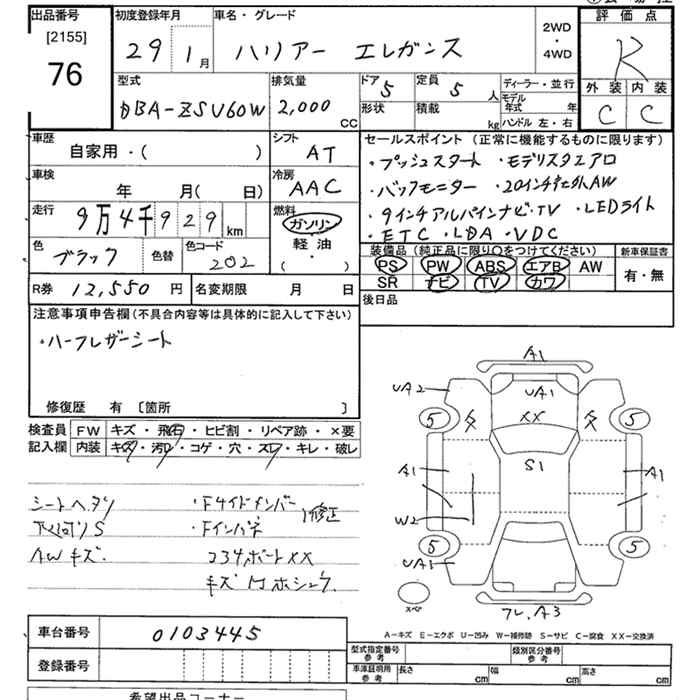 出品番号
[2155]
76
初度登録年月
29 1月
車名・グレード
ハリアー エレガンス
2WD
・
4WD
評価点
R
外装 内装
C C
型式
DBA-ZSU60W
排気量
2,000
CC
ドア 5
形状
定員 5 人
積載 kg
ディーラー・並行
モデル年式 年
ハンドル 左・右
車歴
自家用・( )
シフト
AT
車検
年 月( 日)
冷房
AAC
走行
9万4千929km
燃料
ガソリン
軽油
・
( )
色
ブラック
色替
色コード
202
R券 12,550 円
名変期限 月 日
セールスポイント (正常に機能するものに限ります)
・プッシュスタート ・モデリスタエアロ
・バックモニター ・20インチ社外AW
・9インチアルパインナビ・TV ・LEDライト
・ETC ・LDA ・VDC
装備品 (純正品に限り○をつけてください)
PS PW ABS エアB AW
SR ナビ TV カワ
新車保証書
有・無
後日品
注意事項申告欄(不具合内容等は具体的に記入して下さい)
・ハーフレザーシート
修復歴 有 〔箇所 〕
検査員 FW キズ・飛石・ヒビ割・リペア跡・×要
記入欄 内装 キズ・汚れ・コゲ・穴・スレ・キレ・破レ
シートヘタリ
下回りS
AWキズ
・Fサイドメンバー
・Fインパネ
修正
コアサポートXX
A1
UA2
UA1
XX
5
5
S1
A1
A1
W2
5
5
UA1
スペア
フレ.A3
A-キズ E-エクボ U-凹み W-補修跡 S-サビ C-腐食 XX-交換済
車台番号 0103445
登録番号
型式指定番号
参考
類別区分番号
参考
車庫証明用
参考
長さ cm 幅 cm 高さ cm
希望出品コーナー